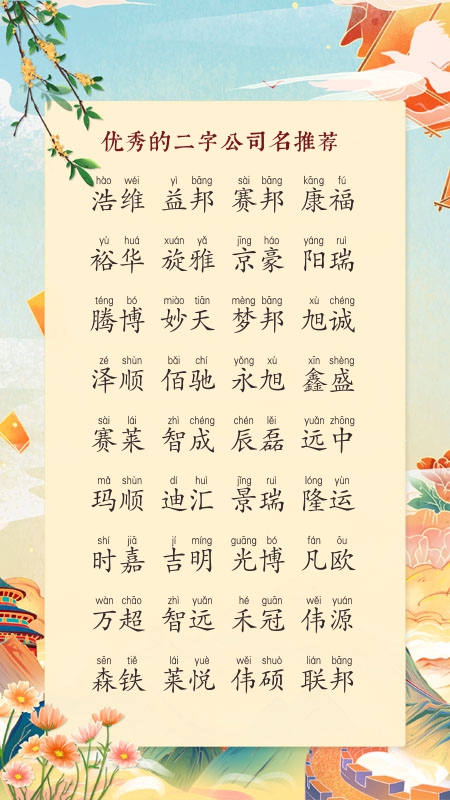 优秀的二字公司名推荐
hào wéi yì bāng sài bāng kāng fú
浩维 益邦 赛邦 康福
yù huá xuán yǎ jīng háo yáng ruì
裕华 旋雅 京豪 阳瑞
téng bó miào tiān mèng bāng xù chéng
腾博 妙天 梦邦 旭诚
zé shùn bǎi chí yǒng xù xīn shèng
泽顺 佰驰 永旭 鑫盛
sài lái zhì chéng chén lěi yuǎn zhōng
赛莱 智成 辰磊 远中
mǎ shùn dí huì jǐng ruì lóng yùn
玛顺 迪汇 景瑞 隆运
shí jiā jí míng guāng bó fán ōu
时嘉 吉明 光博 凡欧
wàn chāo zhì yuǎn hé guān wěi yuán
万超 智远 禾冠 伟源
sēn tiě lái yuè wěi shuò lián bāng
森铁 莱悦 伟硕 联邦